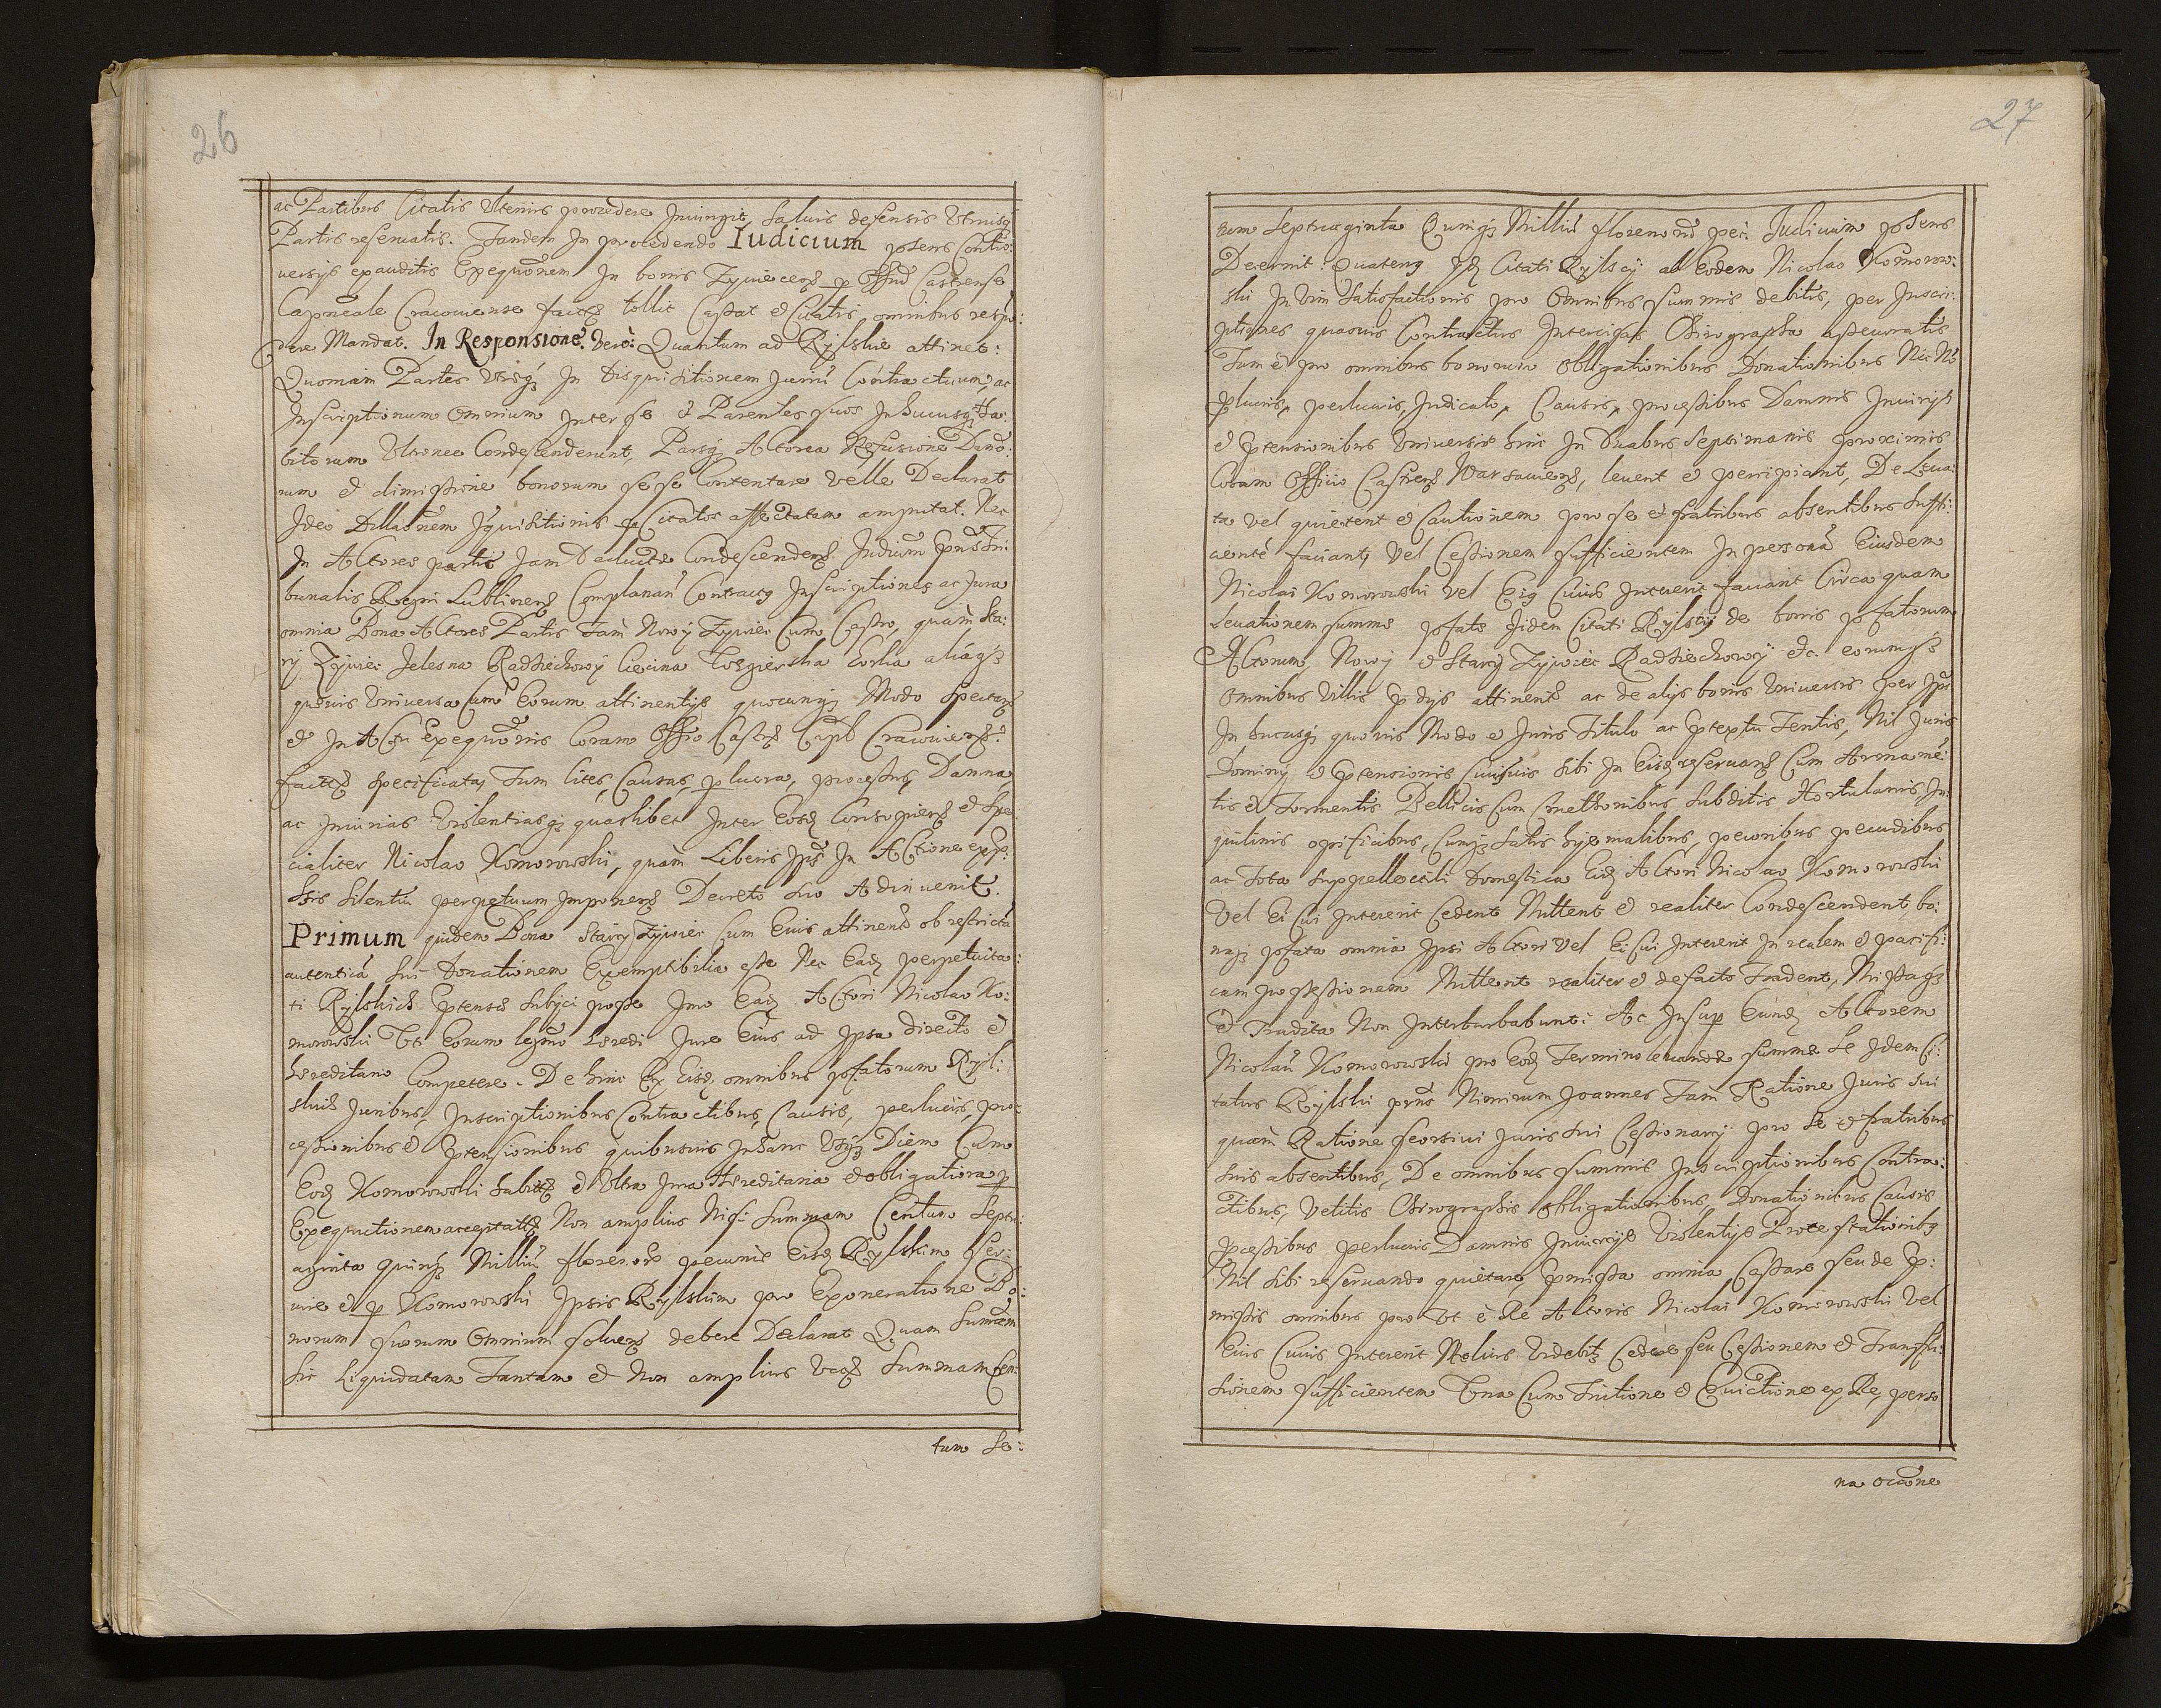 26
ac Partibus Citatis Vlterius procedere Iniungit, Saluis defensis Vtriusq3
Partis reseruatis. Tandem In procedendo Iudicium pñsens Contro:
uersys exauditis Exequōnem In bonis Zywiecens p Offiū Castrense
Capneale Cracouiense factā tollit Cassat et Citatis omnibus respō:
dere Mandat. In Responsione Verò: Quantum ad Rylskie attinet:
Quoniam Partes Vtraq3 In disquisitionem Juriū Contractuum, ac
Inscriptionum omnium Inter se et Parentes suos In hucusq3 Ha:
bitorum Vltronee Condescenderunt, Parsq3 Actorea Refusione Damno:
rum et dimissione bonorum sese Contentare velle Declarat
Ideo Dillaōnem Inquisitionis p Citatos affectatam amputat. Nec
In Actores partis Jam Deductis Condescendens Judicium pñs Tri
bunalis Regni Lublinens Complanari Contractus Inscriptiones ac Jura
omnia Bona Actores Partis Tam Nowy Zywiec Cum Castro, quàm Sta:
ry Zywiec Jelesna Radziechowy Ciecina aliaq3
quæuis Vniuersa Cum Eorum attinentys quocunq3 Modo Spectan
et In Actu Exequōnis Coram Offio Castr Cracouiens
factæ specificata, Tum lites, Causas, plucra, processus, Damna
ac Iniurias Violentiasq3 quaslibet Inter Eosd Consopiens et Spe
cialiter Nicolao Komorowski, quàm Liberis Ipsi In Actione exp:
ssis Silentiū perpetuum Imponens Decreto suo Adinuenit.
Primum quidem Bona Stary Zywiec Cum Eius attinens ob restrictā
autenticā sui donationem Exemptibilia esse Nec Ead perpetuita:
ti Rylskich ptensæ Subyci posse Imo Ead Actori Nicolao Ko:
morowski Vt Eorum legmo hæredi Jure Eius ad Ipsa directo et
hæreditario Competere. De hinc Ex Eisd omnibus pfatorum Ryl:
skich Juribus, Inscriptionibus Contractibus, Causis, perlucris, pro
cessionibus et ptensionibus quibusuis In hanc Vsq3 Diem Cum
Eod Komorowski habitis et Vltra Jura Hæreditaria et obligatoria p
Exequutionem acceptatis Non amplius Nisi Summam Centum Septu:
aginta quinq3 Milliū florenorū pecuniæ Eisd Rylskim ser:
uire et p Komorowski Ipsis Rylskim pro Exoneratione Bo:
norum suorum Omnium soluens debere Declarat Quam Summam
Sic Liquidatam Tantam et Non amplius Summam Cen:
tum Se:
27
tum Septuaginta Quinq3 Milliū florenorū pec. Judicium pñsens
Decernit: Quatenus Jid Citati Rylscy ab Eodem Nicolao Komorow:
ski In Vim Satisfactionis pro Omnibus summis debitis, per Inscri:
ptiones quasuis Contractus Intercisas Chirographa assecuratis
Tum et pro omnibus bonorum obligationibus Donationibus Nec Nō
plucris, perlucris, Iudicato, Causis, processibus Damnis Iniurys
et ptensionibus Vniuersis hinc In duabus Septimanis proximis
Coram Officio Castrens Warsauiens, leuent et percipiant, De Leua:
ta vel quietent et Cautionem pro se et fratribus absentibus suffi:
cientē faciant, Vel Cessionem sufficientem In personā Eiusdem
Nicolai Komorowski vel Eius Cuius Intererit faciant Circa quam
Leuationem summæ pfatæ Jidem Citati Rylscy de bonis pfatorum
Actorum, Nowy et Stary Zywiec Radziechowy etc. eorumq3
omnibus Villis pdys attinens ac de alys bonis Vniuersis per Ipos
In hucusq3 quouis Modo et Juris Titulo ac ptextu Tentis, Nil Juris
dominy et ptensionis Cuiusuis Sibi In Eisd reseruans Cum Armamē
tis et Tormentis Bellicis Cum Cmethonibus Subditis Hortulanis, In:
quilinis opificibus, Cumq3 Satis hyemalibus, pecoribus pecudibus
ac Tota Suppellectili domestica Eid Actori Nicolao Komorowski
Vel Ei Cui Intererit Cedent Mittent et realiter Condescendent, bo:
naq3 pfata omnia Ipsi Actori Vel Ei Cui Intererit In realem et pacifi:
cam possessionem Mittent realiter et de facto Tradent, Missaq3
et Tradita Non Interturbabunt: Ac Insup Eund Actorem
Nicolaū Komorowski pro Eod Termino leuandæ summæ Se Idem Ci:
tatus Rylski pñs Nimirum Joannes Tam Ratione Juris sui
quam Ratione seorsiui Juris sui Cessionary pro Se et fratribus
suis absentibus, De omnibus summis Inscriptionibus Contra:
ctibus, Vetitis Chirographis obligationibus, Donationibus Causis
pcessibus perlucris Damnis Iniurys Violentys Protestationibus
Nil Sibi reseruando quietare pmissa omnia Cassare seu de p:
missis omnibus pro Vt è Re Actoris Nicolai Komorowski Vel
Eius Cuius Intererit Melius Videbit Cedere seu Cessionem et Transfu:
sionem sufficientem Vna Cum Tuitione et Euictione ex Re, perso
na occōne